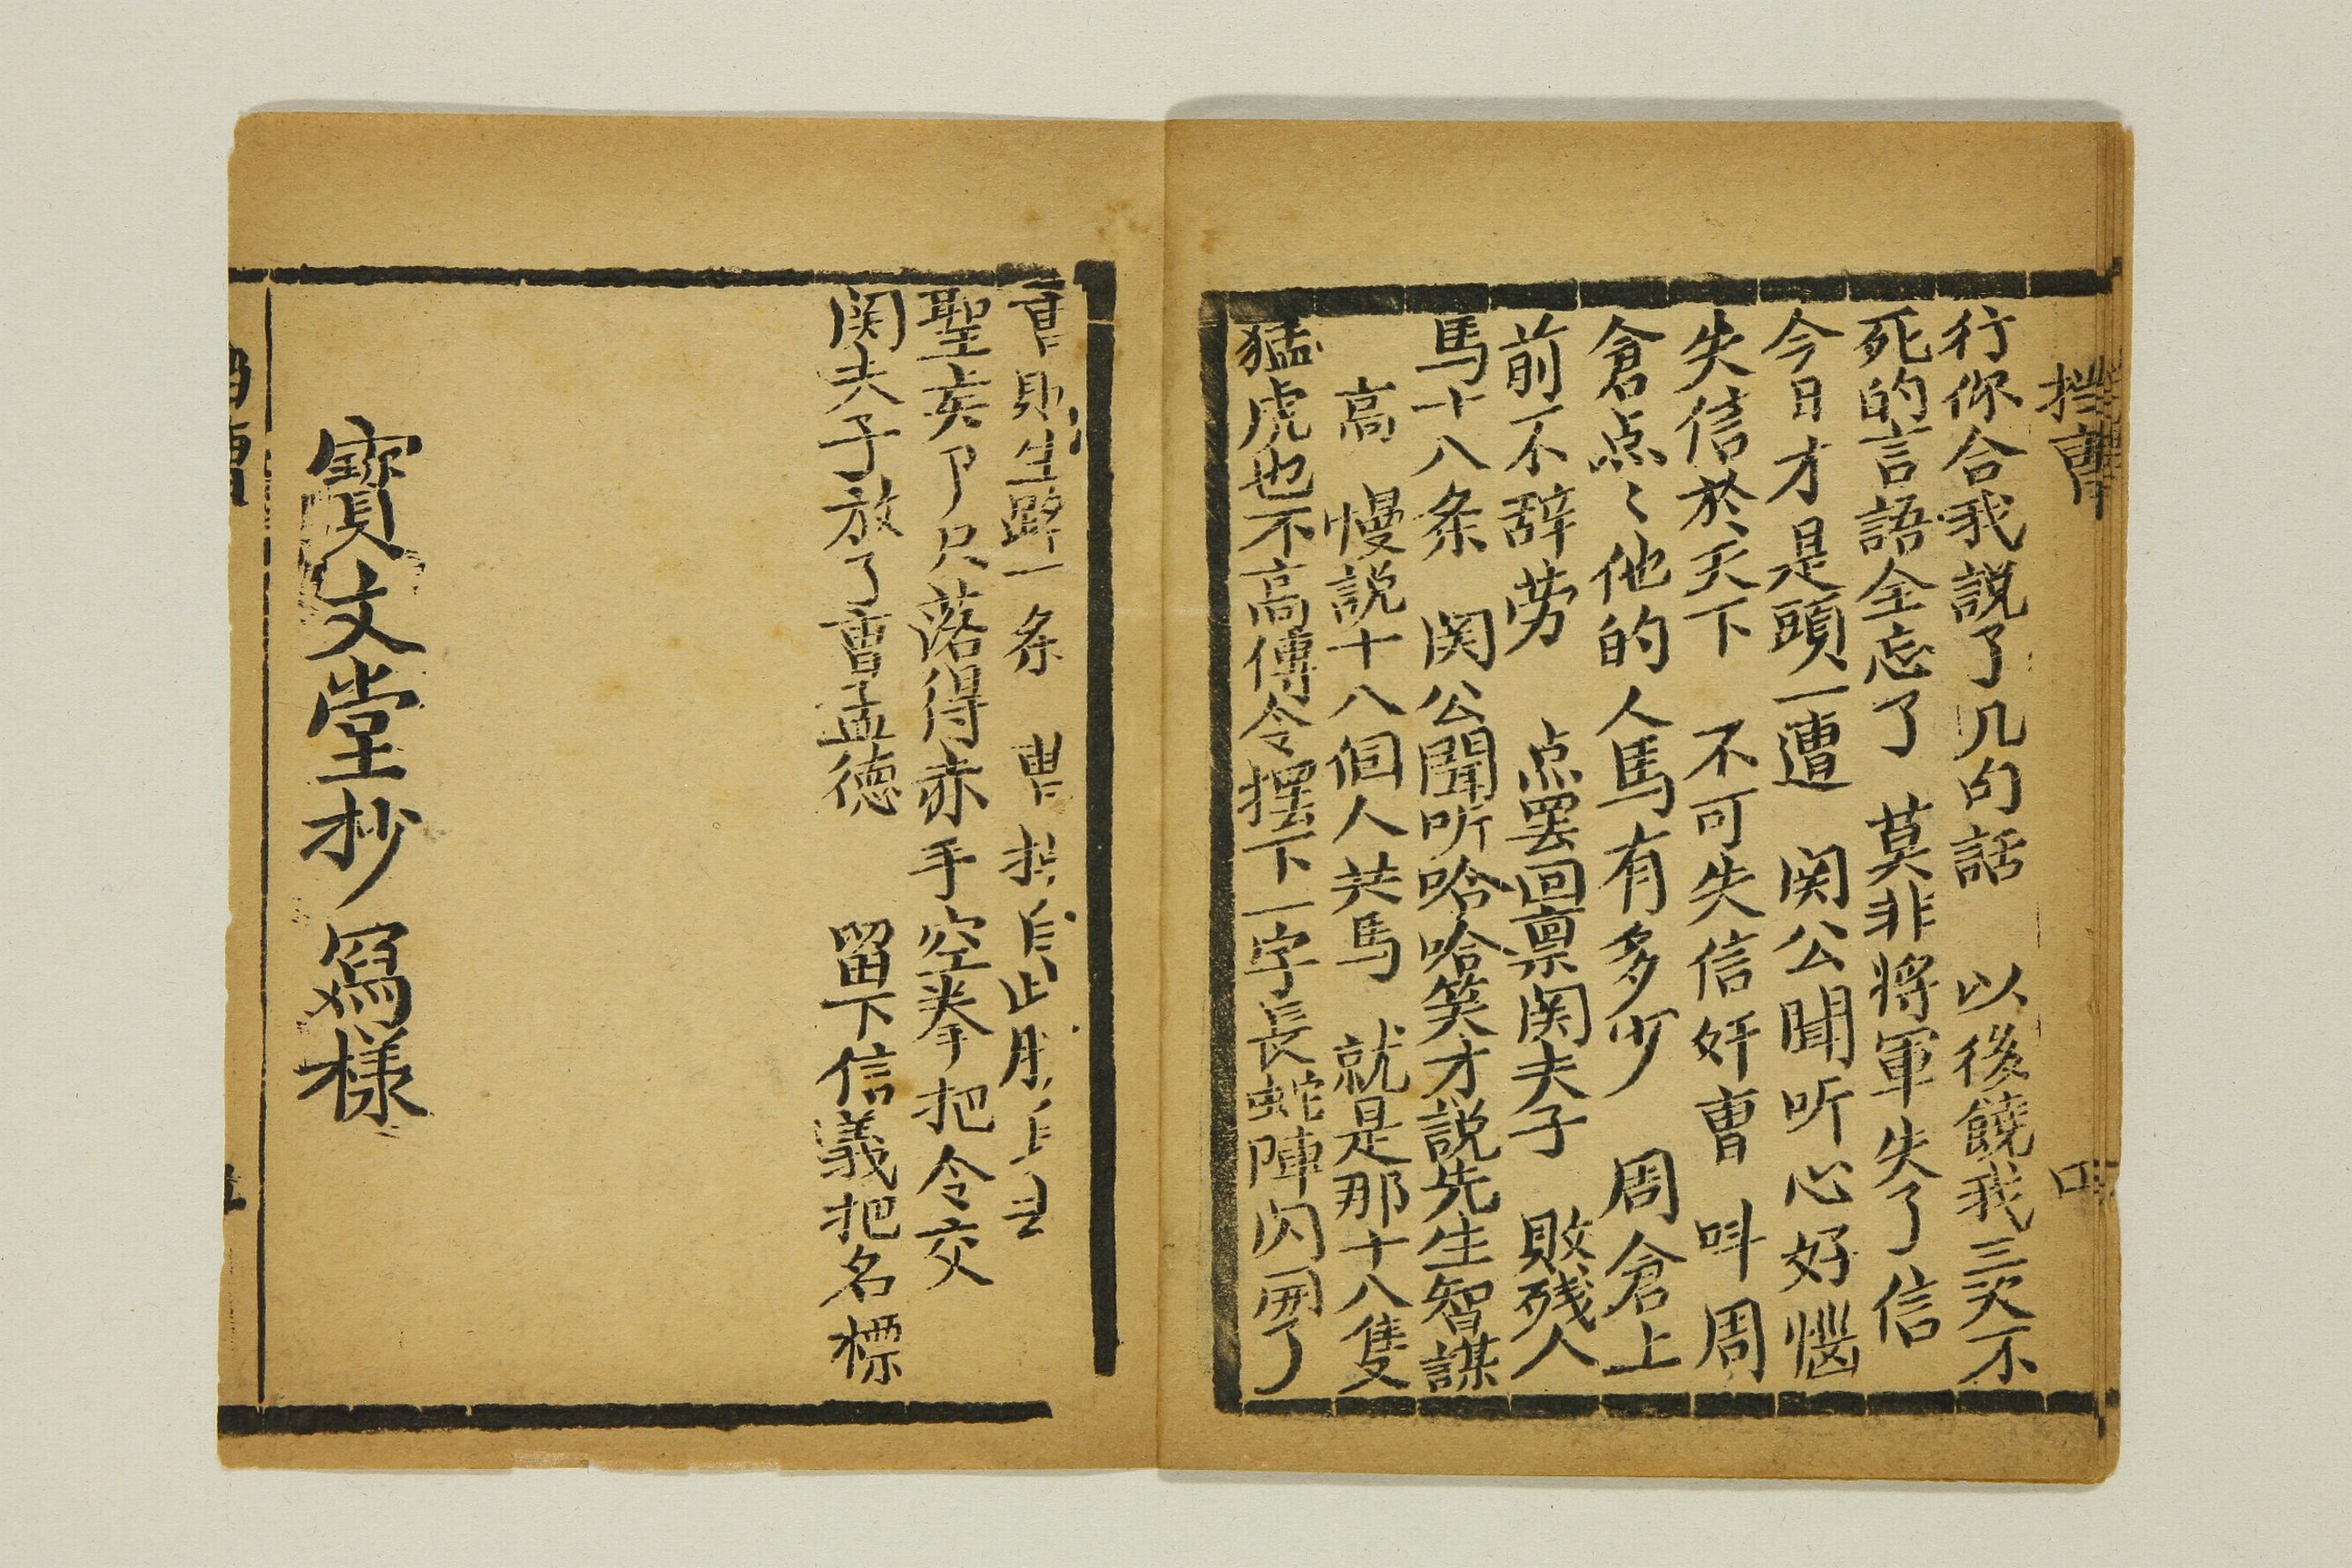 擋曹
行你合我說了几句話　以後饒我三次不
死的言語全忘了　莫非将軍失了信
今日才是頭一遭　関公聞听心好惱
失信於天下　不可失信奸曹　呌周
倉点〻他的人馬有多少　周倉上
前不辞劳　点罢回禀関夫子　敗残人
馬十八条　関公聞听哈哈笑才説先生智謀
高　慢説十八個人共馬　就是那十八隻
猛虎也不高傳令擺下一字長蛇陣闪開了
生路一条　曹
聖亥了只落得赤手空拳把令交
関夫子放了曹孟德　留下信義把名標
寳文堂抄寫樣